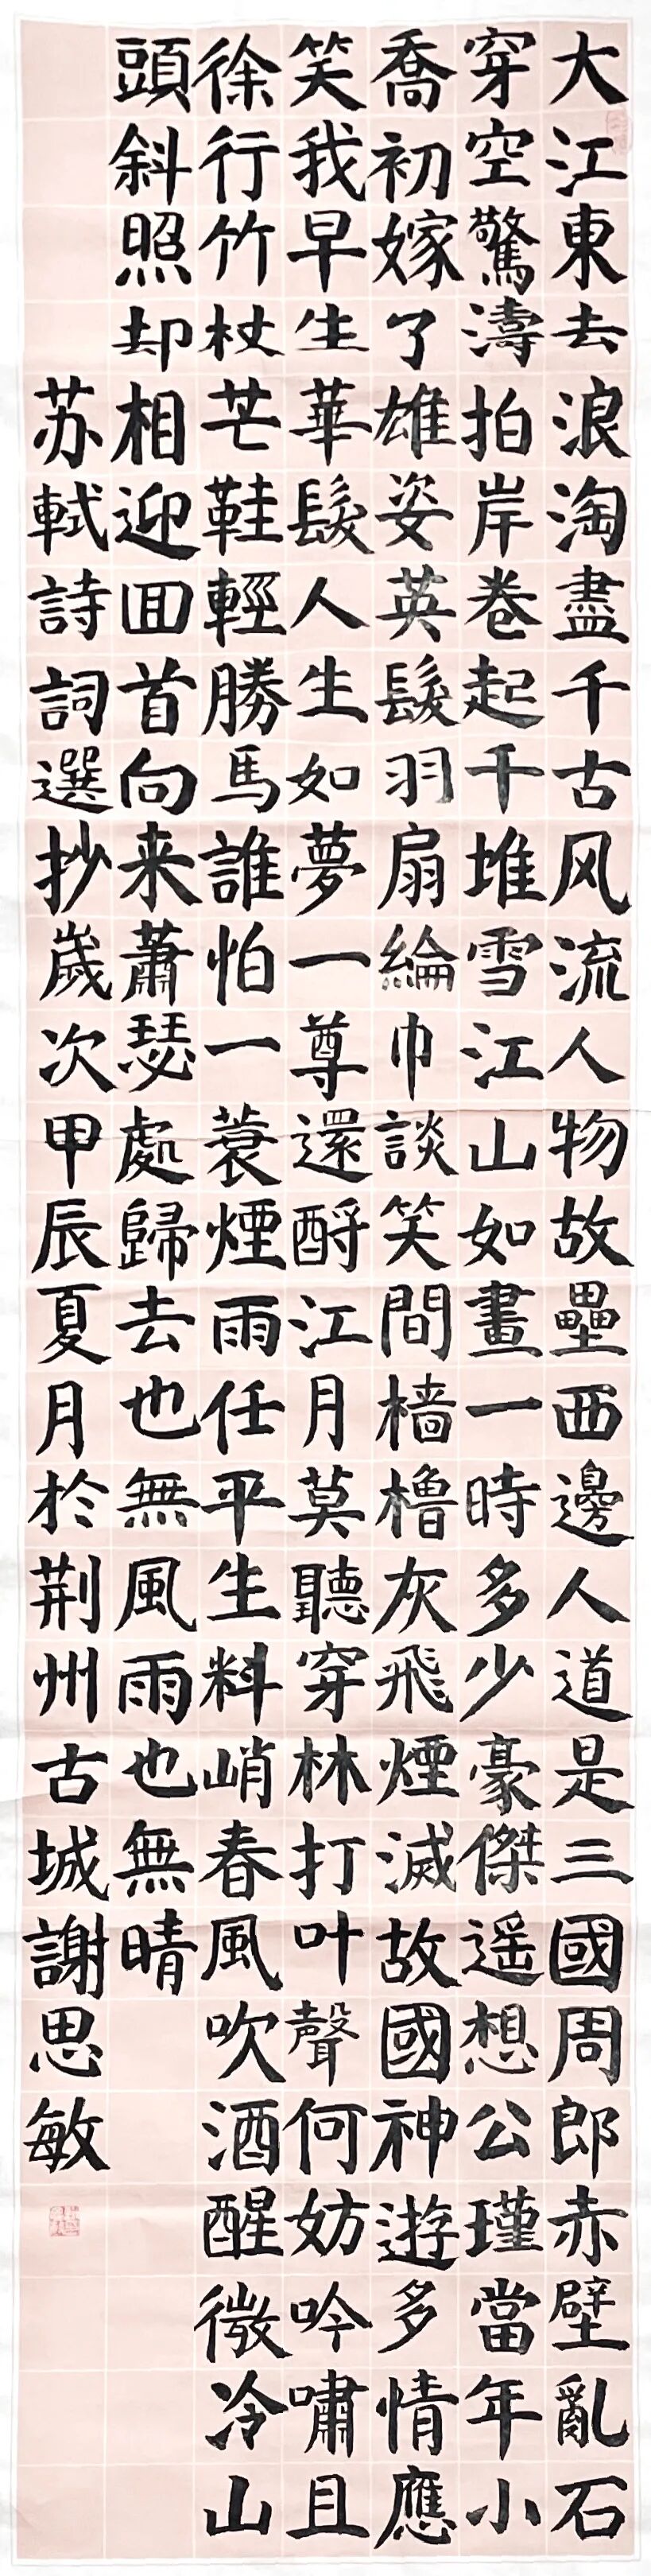 大江東去浪淘盡千古风流人物故壘西邊人道是三國周郎赤壁亂石
穿空驚濤拍岸卷起千堆雪江山如畫一時多少豪傑遥想公瑾當年小
喬初嫁了雄姿英髮羽扇綸巾談笑間檣櫓灰飛煙滅故國神遊多情應
笑我早生華髮人生如夢一尊還酹江月莫聽穿林打叶聲何妨吟嘯且
徐行竹杖芒鞋輕勝馬誰怕一蓑煙雨任平生料峭春風吹酒醒微冷山
頭斜照却相迎回首向来蕭瑟處歸去也無風雨也無晴
苏軾詩詞選抄歲次甲辰夏月於荆州古城謝思敏